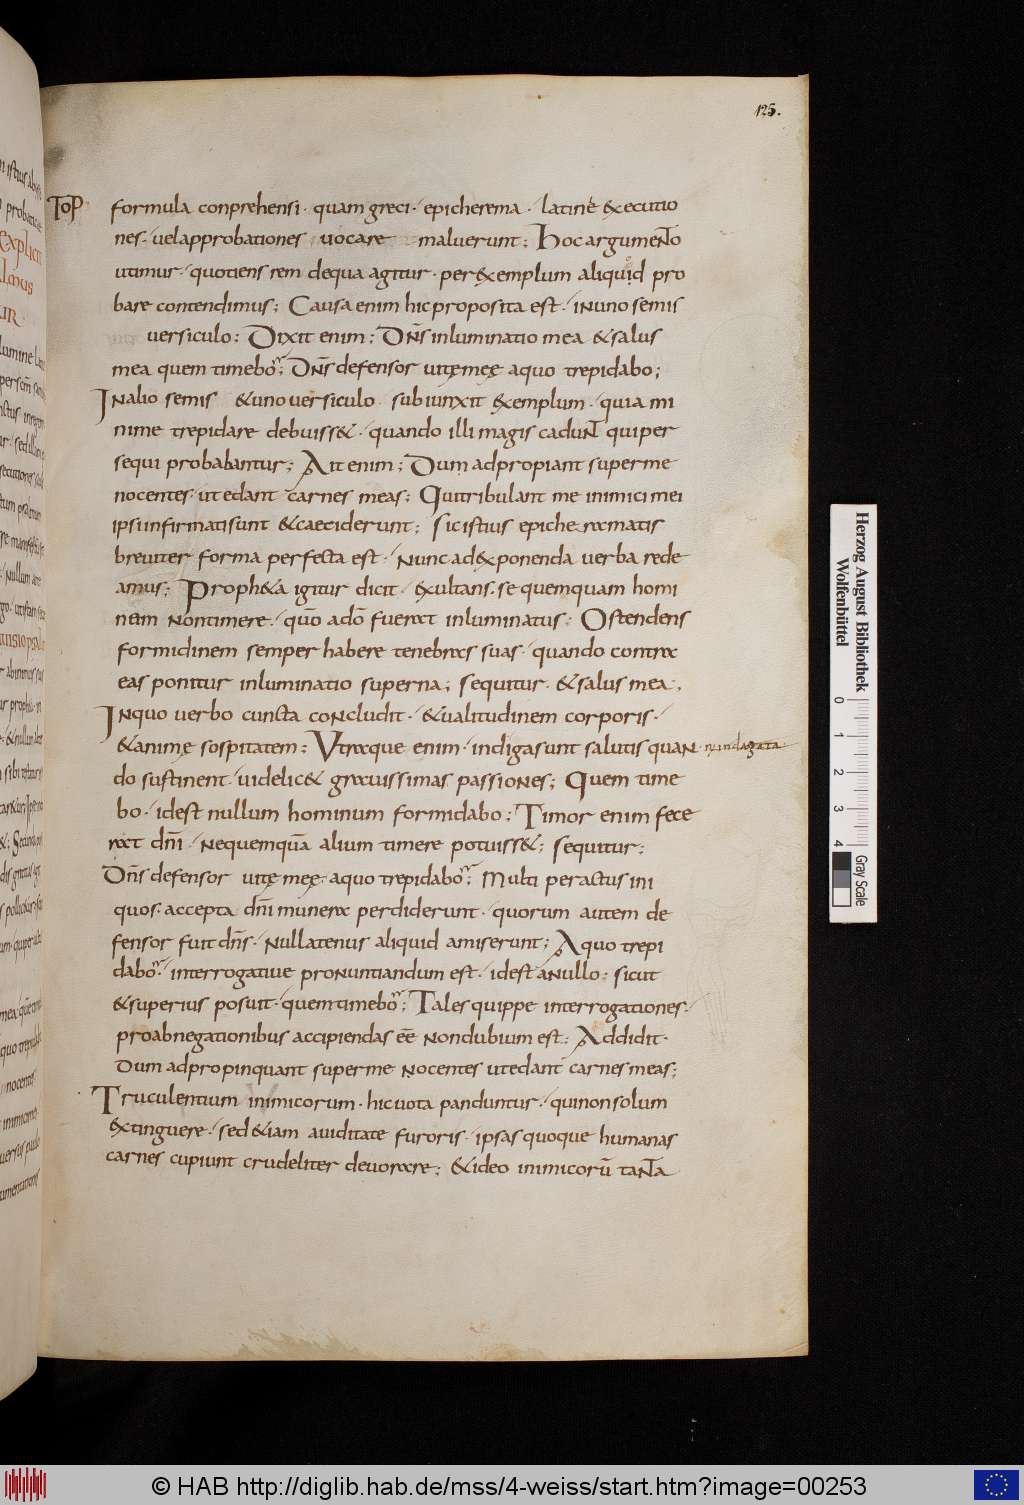 125.
TOP
formula conprehensi · quam greci · epicherema · latine executio
nes · vel approbationes vocare maluerunt; Hoc argumento
utimur · quotiens rem de qua agitur · per exemplum aliquid pro
bare contendimus; Causa enim hic proposita est · in uno semis
versiculo: Dixit enim: Dn̄s inluminatio mea & salus
mea quem timebo; Dn̄s defensor vitę meę a quo trepidabo;
In alio semis & uno versiculo subiunxit exemplum · quia mi
nime trepidare debuiss& · quando illi magis cadunt qui per
sequi probabantur; Ait enim; Dum adpropiant super me
nocentes · ut edant carnes meas: Qui tribulant me inimici mei
ipsi infirmati sunt & caeciderunt; Sic istius epicherematis
breviter forma perfecta est · Nunc ad exponenda verba rede
amus; Proph&a igitur dicit · exultans · se quemquam homi
nem non timere · quō a dō fuerat inluminatus: Ostendens
formidinem semper habere tenebras suas · quando contra
eas ponitur inluminatio superna; sequitur · & salus mea;
In quo verbo cuncta concludit · & valitudinem corporis ·
& animę sospitatem: Utraque enim · indiga sunt salutis quan
do sustinent · videlic& gravissimas passiones; Quem time
bo · id est nullum hominum formidabo: Timor enim fece
rat dn̄i · ne quemquā alium timere potuiss&; sequitur:
Dn̄s defensor vitę meę · a quo trepidabo; Multi per actus ini
quos · accepta dn̄i munera perdiderunt · quorum autem de
fensor fuit dn̄s · nullatenus aliquid amiserunt; A quo trepi
dabo · interrogative pronuntiandum est · id est a nullo: sicut
& superius posuit · quem timebo; Tales quippe interrogationes ·
pro abnegationibus accipiendas eē̄ non dubium est: Addidit ·
Dum adpropinquant super me nocentes ut edant carnes meas;
Truculentium inimicorum · hic vota panduntur · qui non solum
extinguere · sed &iam aviditate furoris · ipsas quoque humanas
carnes cupiunt crudeliter devorare; & ideo inimicorū tanta
Herzog August Bibliothek
Wolfenbüttel
0 1 2 3 4
Gray Scale
© HAB http://diglib.hab.de/mss/4-weiss/start.htm?image=00253